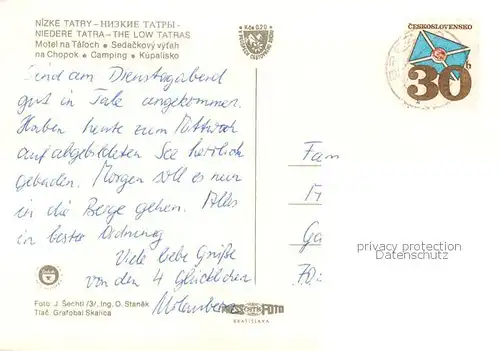 NÍZKE TATRY – НИЗКИЕ ТАТРЫ –
NIEDERE TATRA – THE LOW TATRAS
Motel na Táľoch • Sedačkový výťah
na Chopok • Camping • Kúpalisko
K 4a 020
ČESKOSLOVENSKO
30 h
Sind am Dienstagabend
gut in Tale angekommen.
Haben heute zum Mittwoch
auf abgebildeten See herrlich
gebaden. Morgen soll es nun
in die Berge gehen. Alles
in bester Ordnung
Viele liebe Grüße
von den 4 Glücklichen
Fam
Ga
privacy protection
Datenschutz
Foto: J. Šechtl /3/, Ing. O. Staněk
Tlač: Grafobal Skalica
PRESSFOTO
BRATISLAVA